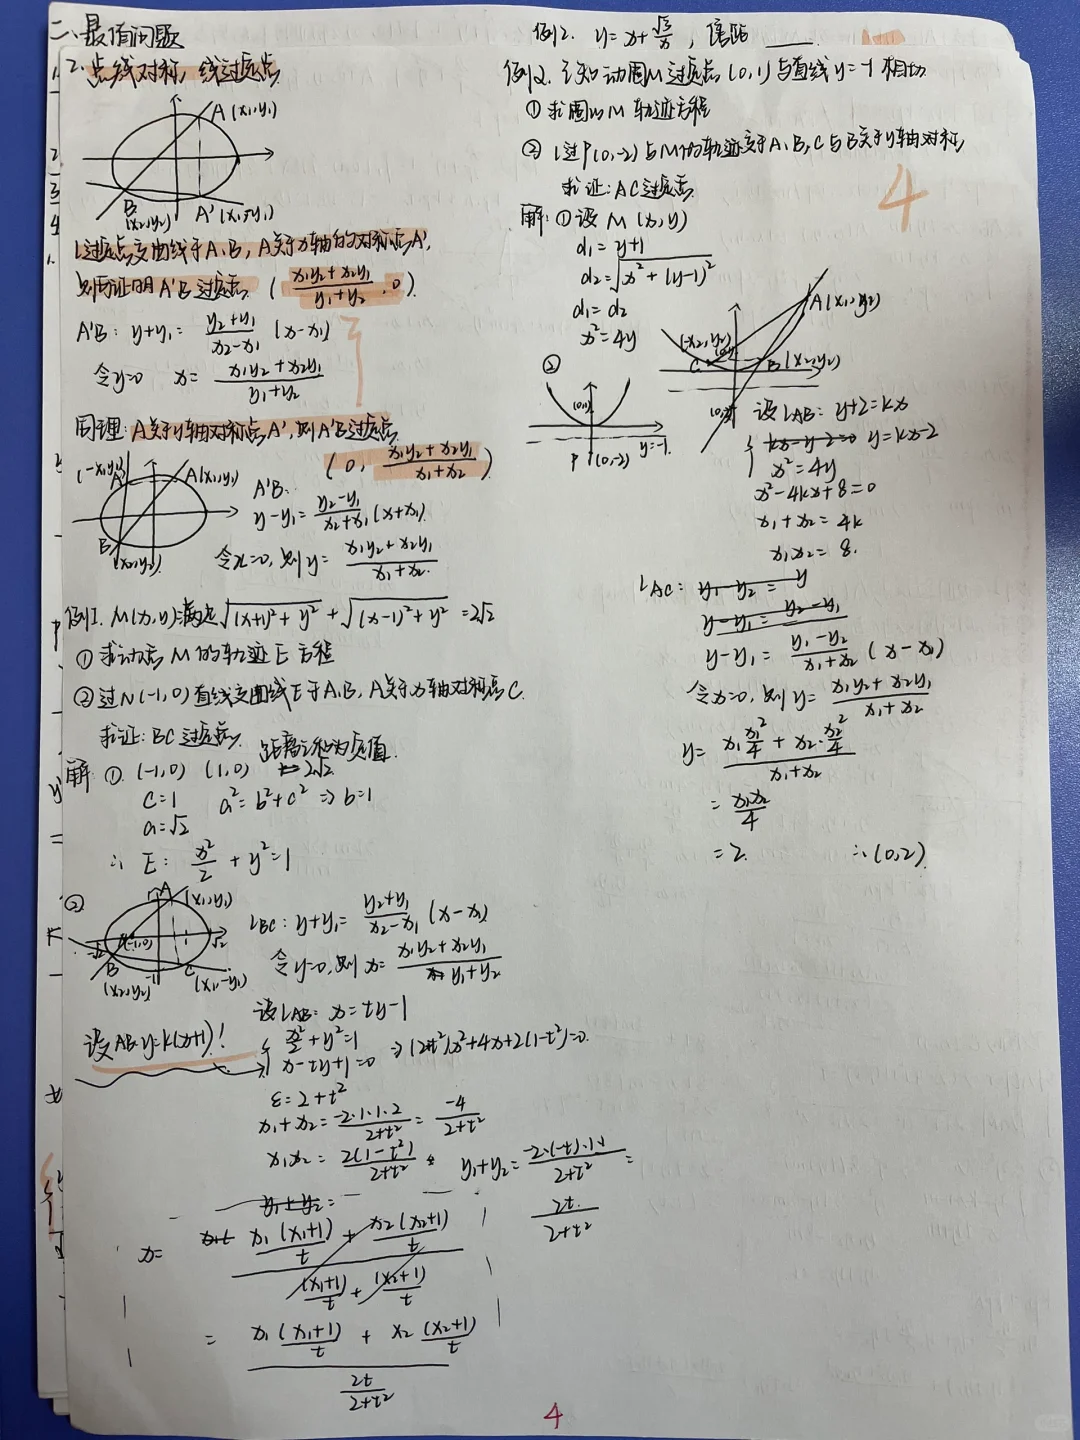 二、最值问题
2. 点线对称, 线过定点
A (x₁,y₁)
B (x₂,y₂)
A' (x₁,-y₁)
l过定点交曲线于A、B, A关于x轴的对称点A',
则可证明A'B过定点 ( (x₁y₂+x₂y₁)/(y₁+y₂) , 0 )
A'B: y+y₁= (y₂+y₁)/(x₂-x₁) (x-x₁)
令y=0 x= (x₁y₂+x₂y₁)/(y₁+y₂)
同理: A关于y轴对称点A', 则A'B过定点
( 0, (x₁y₂+x₂y₁)/(x₁+x₂) )
(-x₁,y₁)
A'
A(x₁,y₁)
B
(x₂,y₂)
A'B:
y-y₁= (y₂-y₁)/(x₂+x₁) (x+x₁)
令x=0, 则y= (x₁y₂+x₂y₁)/(x₁+x₂)
例1. M(x,y)满足√((x+1)²+y²) + √((x-1)²+y²) =2√2
① 求动点M的轨迹E方程
② 过N(-1,0)直线交曲线E于A、B, A关于x轴对称点C.
求证: BC过定点.
距离之和为定值.
解 ① (-1,0) (1,0) 2√2
c=1 a²=b²+c² ⇒ b=1
a=√2
∴ E: x²/2 + y²=1
②
A (x₁,y₁)
(-1,0)
-√2
√2
1
-1
B
(x₂,y₂)
C
(x₁,-y₁)
L_BC: y+y₁= (y₂+y₁)/(x₂-x₁) (x-x₁)
令y=0, 则 x= (x₁y₂+x₂y₁)/(y₁+y₂)
设L_AB: x=ty-1
设AB y=k(x+1)!
{ x²/2+y²=1
x-ty+1=0 ⇒ (2+t²)x²+4x+2(1-t²)=0.
ε=2+t²
x₁+x₂= (-2·1·1·2)/(2+t²) = -4/(2+t²)
x₁x₂= 2(1-t²)/(2+t²)
y₁+y₂= (-2·(-t)·1·1)/(2+t²) =
2t/(2+t²)
y₁+y₂=
x= (x₁(x₁+1)/t + x₂(x₂+1)/t)/((x₁+1)/t + (x₂+1)/t)
= (x₁(x₁+1)/t + x₂(x₂+1)/t)/(2t/(2+t²))
4
例2. y=x+√3/x, 焦距 ____.
例2. 已知动圆M过定点(0,1)与直线y=-1相切
① 求圆心M轨迹方程
② l过P(0,-2)与M的轨迹交于A、B, C与B关于y轴对称,
求证: AC过定点.
4
解: ① 设M(x,y)
d₁=y+1
d₂=√(x²+(y-1)²)
d₁=d₂
x²=4y
②
(0,1)
y=-1
P (0,-2)
A(x₁,y₂)
(-x₂,y₂)
C
B (x₂,y₂)
设L_AB: y+2=kx
{ kx-y-2=0 y=kx-2
x²=4y
x²-4kx+8=0
x₁+x₂=4k
x₁x₂=8.
L_AC: y₁-y₂= y
y-y₁= y₂-y₁
y-y₁= (y₁-y₂)/(x₁+x₂) (x-x₁)
令x=0, 则y= (x₁y₂+x₂y₁)/(x₁+x₂)
y= (x₁·x₁²/4+x₂·x₂²/4)/(x₁+x₂)
= x₁x₂/4
=2. ∴(0,2)